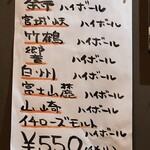 余市 ハイボール
宮城峡 ハイボール
竹鶴 ハイボール
響 ハイボール
白州 ハイボール
富士山麓 ハイボール
山崎 ハイボール
イチローズモルト ハイボール
¥550